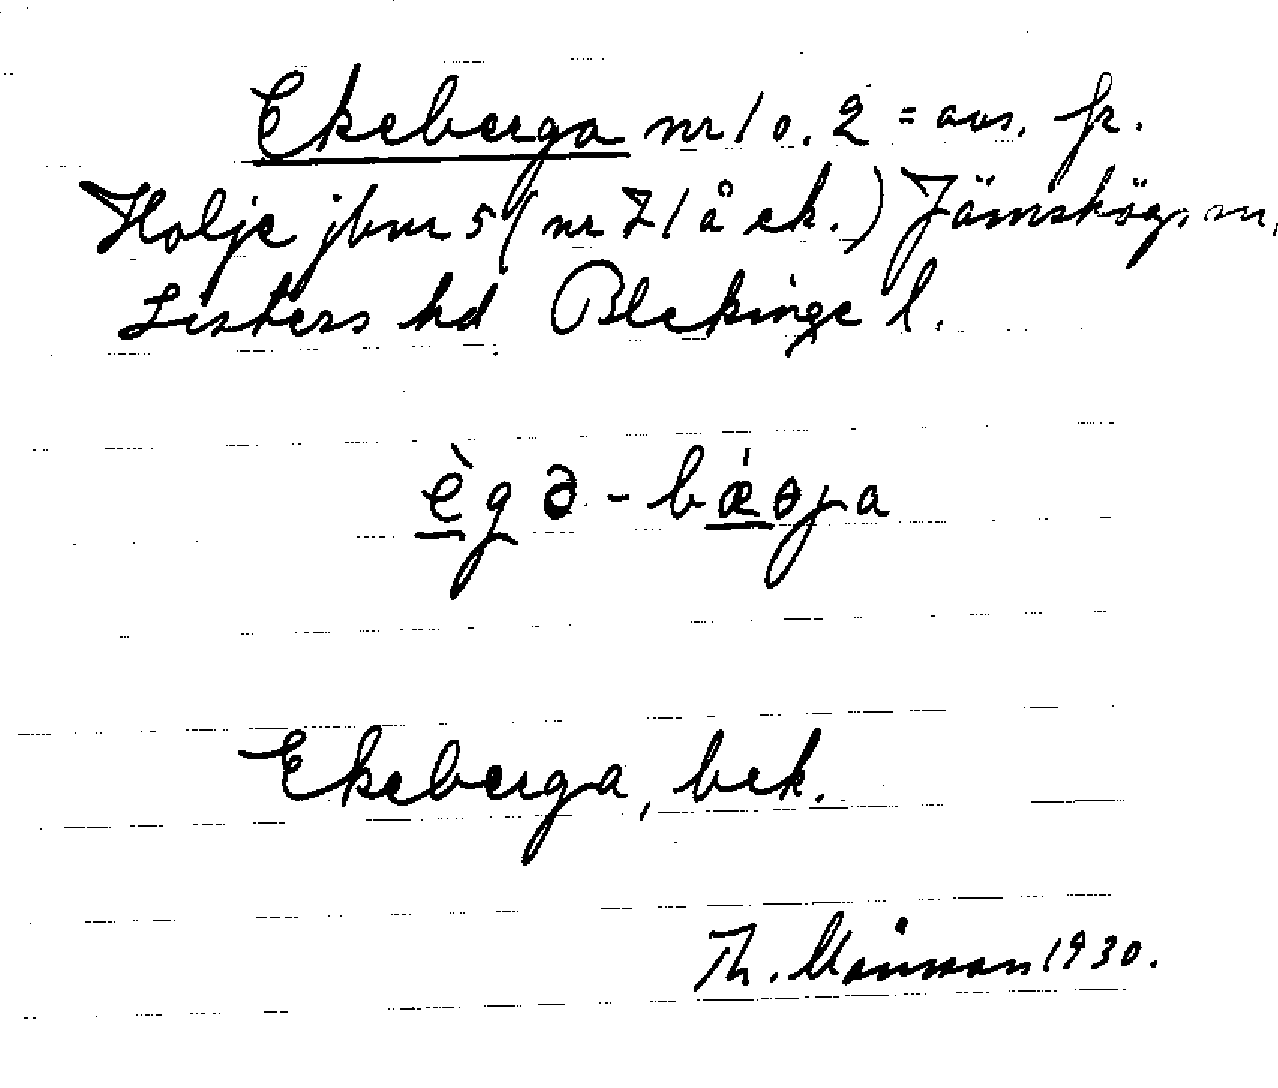 Ekeberga nr 1 o. 2 = avs. fr.
Holje jbnr 5 (nr 71 å ek.) Jämshögs sn,
Listers hd Blekinge l.
ègə-bǽƟɼa
Ekeberga, bek.
Th. Månsson 1930.